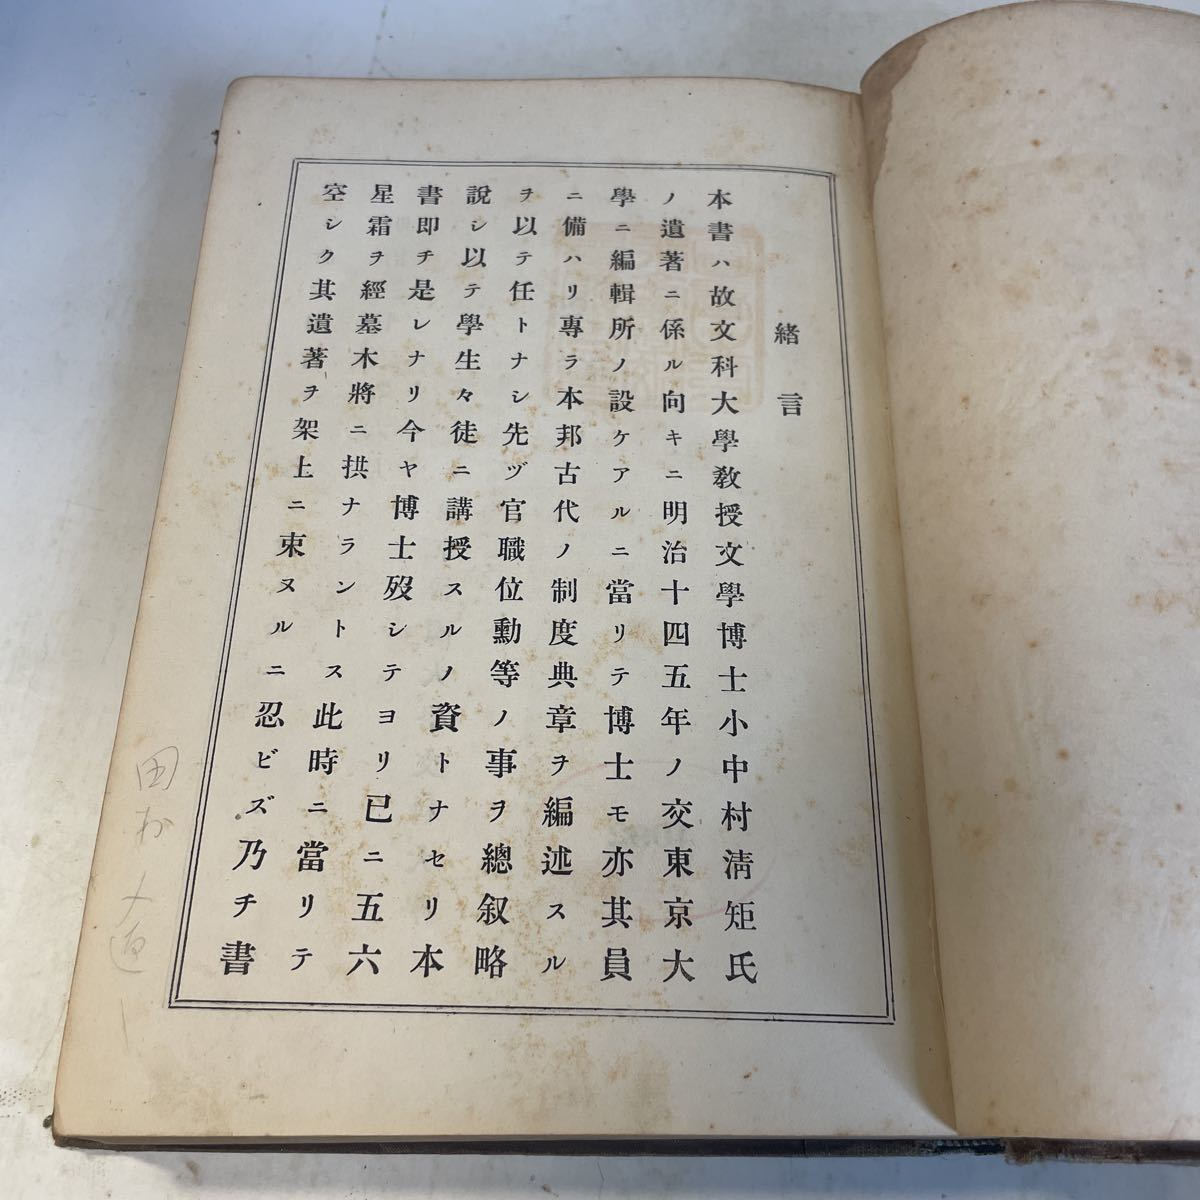 緒言
本書ハ故文科大學敎授文學博士小中村淸矩氏
ノ遺著ニ係ル向キニ明治十四五年ノ交東京大
學ニ編輯所ノ設ケアルニ當リテ博士モ亦其員
ニ備ハリ專ラ本邦古代ノ制度典章ヲ編述スル
ヲ以テ任トナシ先ヅ官職位勳等ノ事ヲ總叙略
說シ以テ學生々徒ニ講授スルノ資トナセリ本
書即チ是レナリ今ヤ博士歿シテヨリ已ニ五六
星霜ヲ經墓木將ニ拱ナラントス此時ニ當リテ
空シク其遺著ヲ架上ニ束ヌルニ忍ビズ乃チ書